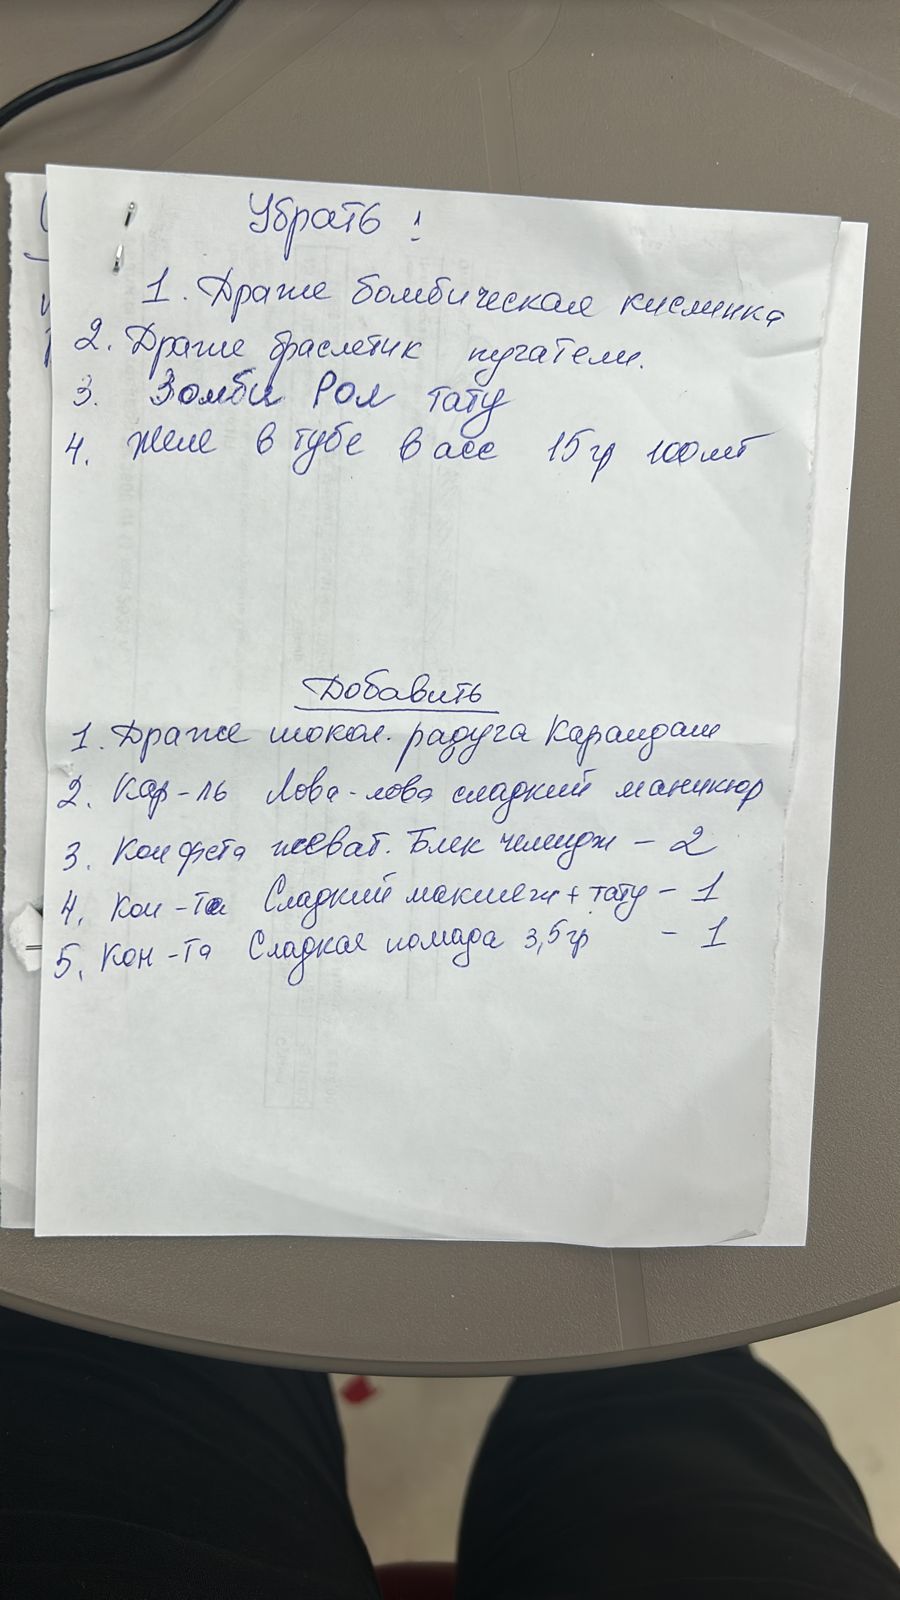 Убрать :
1. Драже бомбическая кислинка
2. Драже браслетик пугатели.
3. Зомби Рол тату
4. Желе в тубе в асс 15 гр 100 шт
Добавить
1. Драже шокол. радуга Карандаш
2. Кар-ль Лова-лова сладкий маникюр
3. Конфета жеват. Блек челендж - 2
4. Кон-та Сладкий макияж + тату - 1
5. Кон-та Сладкая помада 3,5 гр - 1